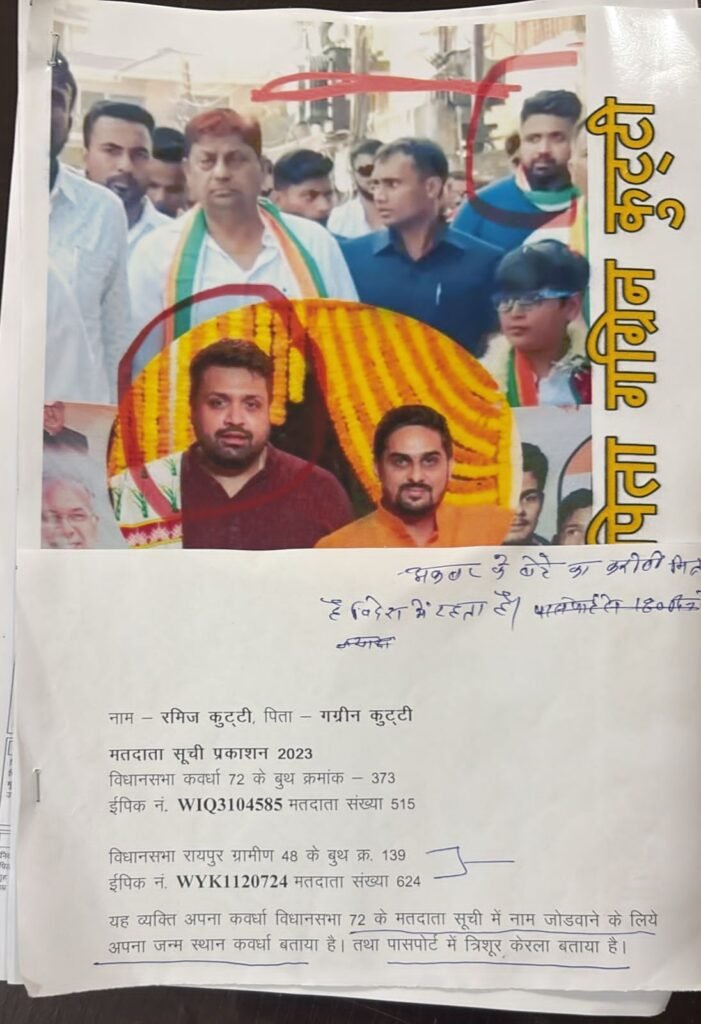 पिता गग्रिन कुट्टी
अकबर के बेटे का करीबी
है विदेश में रहता है।
नाम – रमिज कुट्टी, पिता – गग्रीन कुट्टी
मतदाता सूची प्रकाशन 2023
विधानसभा कवर्धा 72 के बुथ क्रमांक – 373
ईपिक नं. WIQ3104585 मतदाता संख्या 515
विधानसभा रायपुर ग्रामीण 48 के बुथ क्र. 139
ईपिक नं. WYK1120724 मतदाता संख्या 624
यह व्यक्ति अपना कवर्धा विधानसभा 72 के मतदाता सूची में नाम जोडवाने के लिये
अपना जन्म स्थान कवर्धा बताया है। तथा पासपोर्ट में त्रिशूर केरला बताया है।